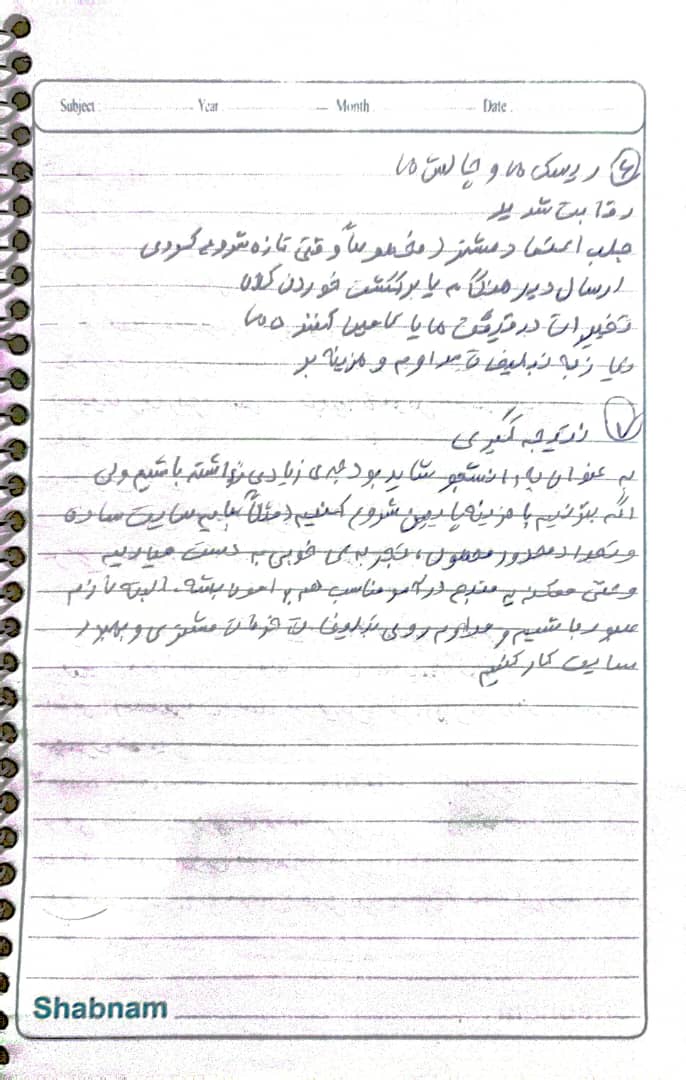 Subject Year Month Date
۶ ریسک ها و چالش ها
رقابت شدید
جلب اعتماد مشتری (مخصوصاً وقتی تازه شروع کردی
ارسال دیر هنگام یا برگشت خوردن کالا
تغییرات در قیمت ها یا تامین کننده ها
نیاز به تبلیغات مداوم و هزینه بر
۷ نتیجه گیری
به عنوان یه دانشجو شاید بودجه ی زیادی نداشته باشیم ولی
اگه بتونیم با هزینه پایین شروع کنیم (مثلاً با یه سایت ساده
و تعداد محدود محصول، تجربه ی خوبی به دست میاریم
و حتی ممکنه یه منبع درآمد مناسب هم برامون باشه. البته لازم
صبور باشیم و مداوم روی تبلیغات خدمات مشتری و بهبود
سایت کار کنیم
Shabnam